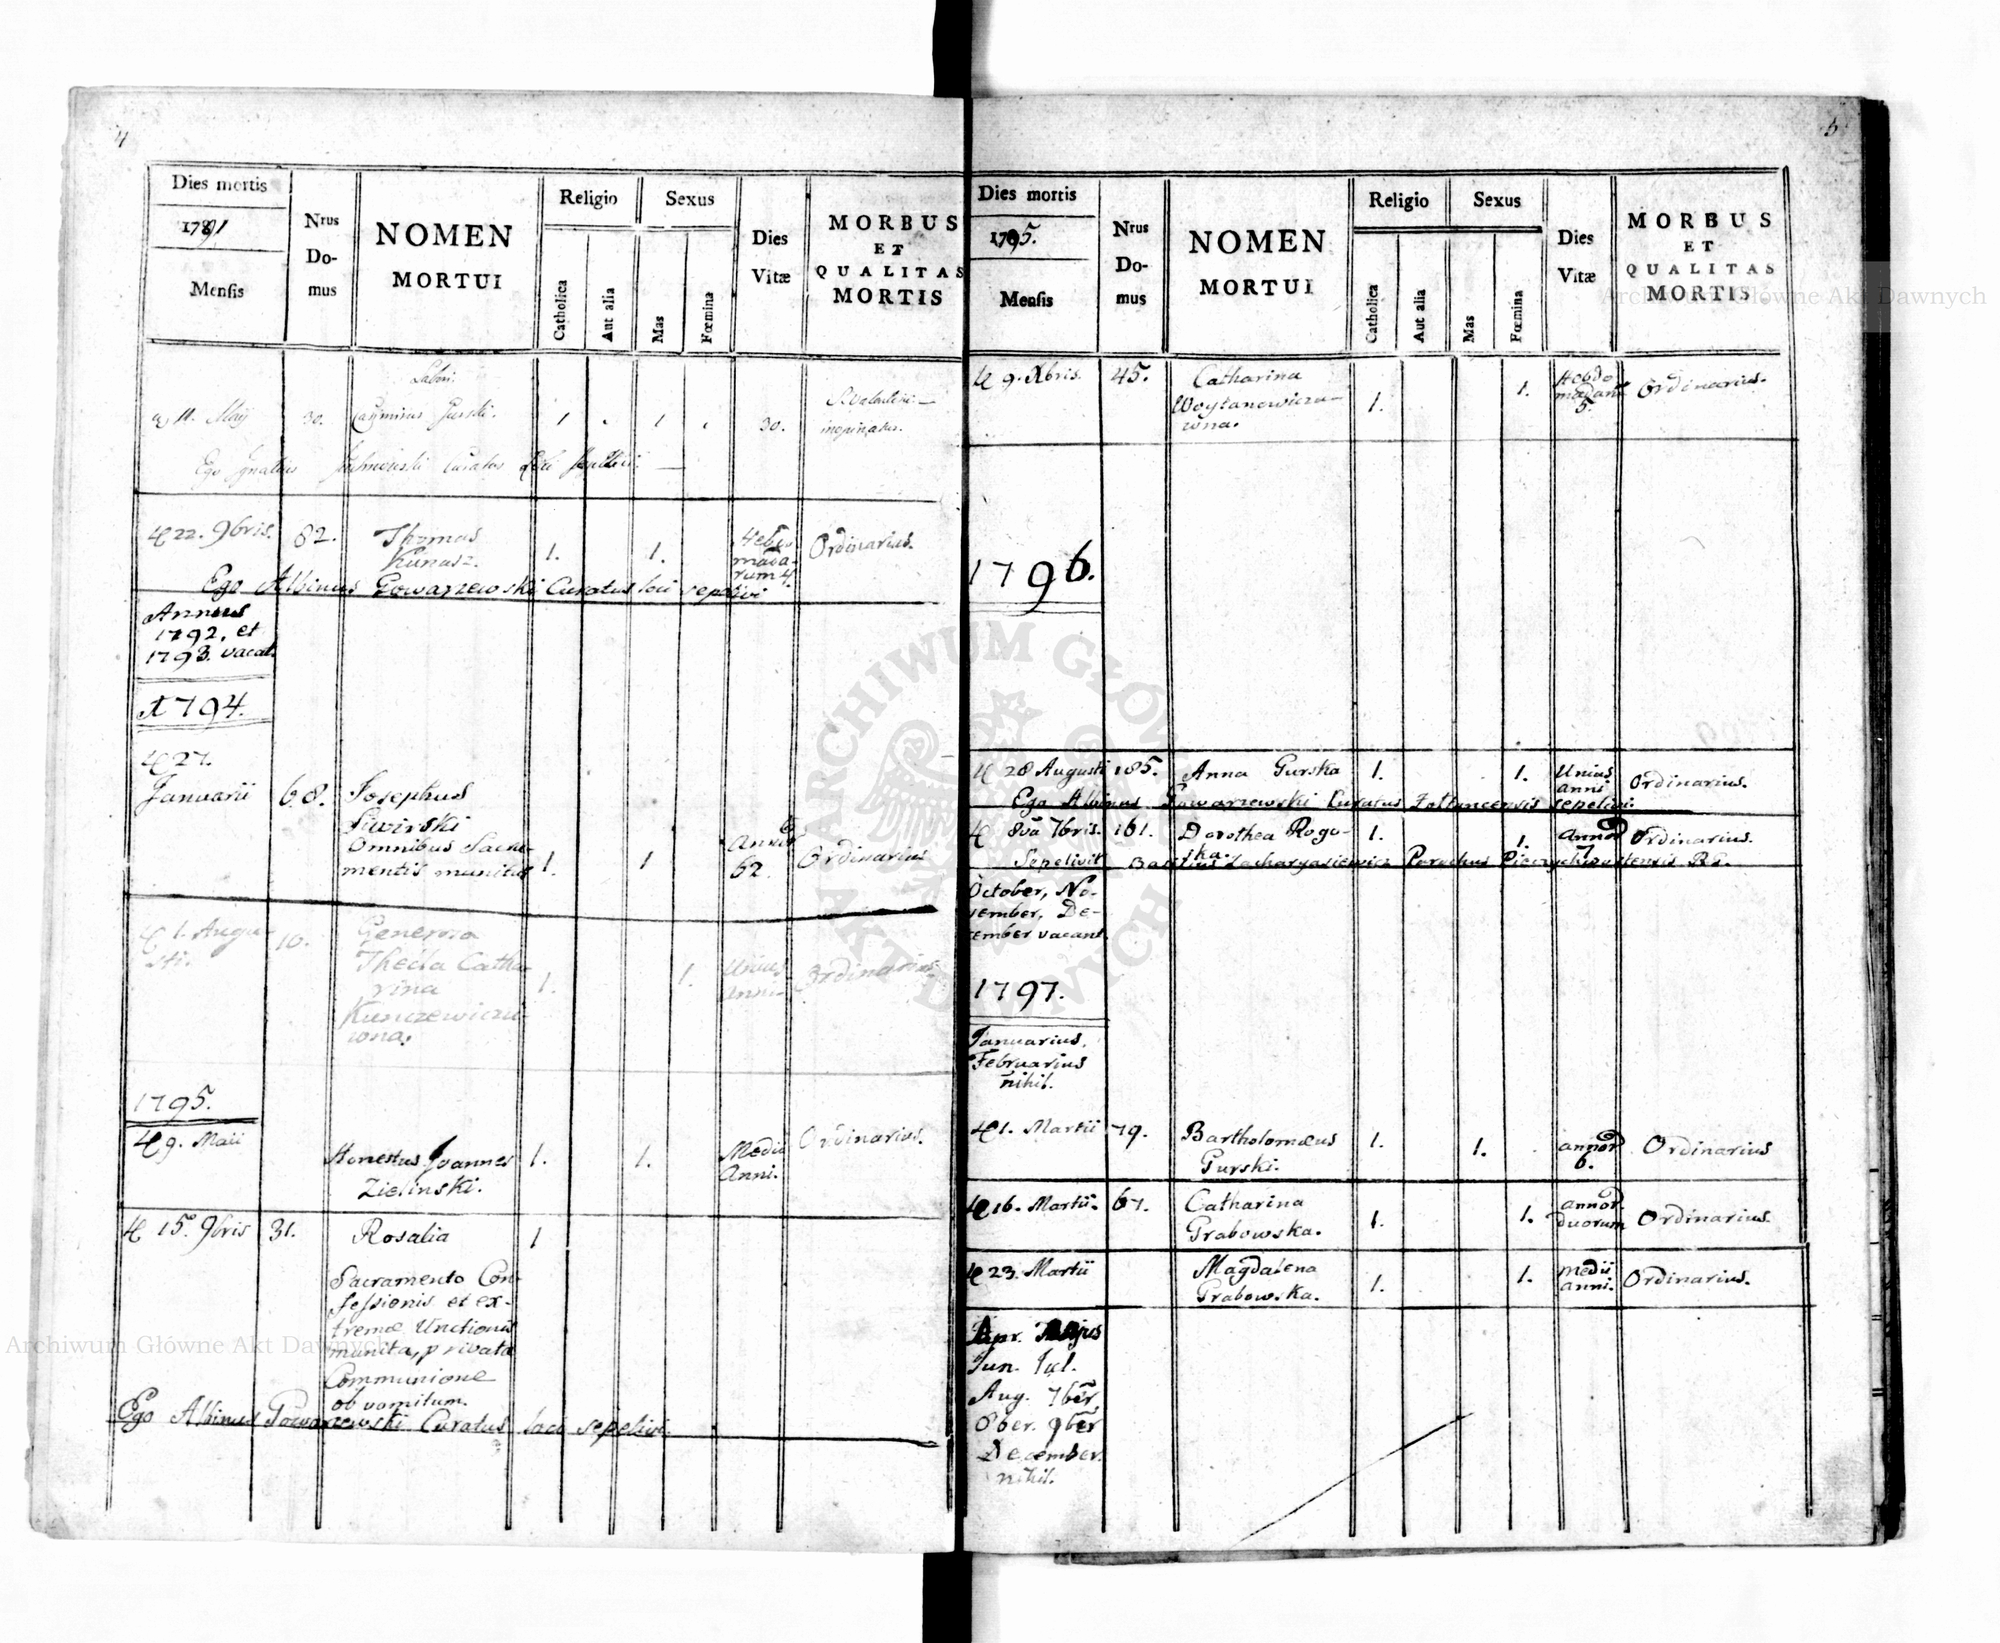 4
Dies mortis
1791
Mensis
Nrus
Do-
mus
NOMEN
MORTUI
Religio
Catholica
Aut alia
Sexus
Mas
Fœmina
Dies
Vitæ
MORBUS
ET
QUALITAS
MORTIS
Labori.
11. Maÿ 30. Casimirus Gurski. 1 1 30.
inopinatus.
Ego Ignatius curatus Loci sepelivi.
22. 9bris. 82. Thomas
Kunasz. 1. 1. Hebdo
mada-
rum 4. Ordinarius.
Ego Albinus Gowarzewski Curatus loci sepelivi
Annus
1792, et
1793. vacat.
1794.
27.
Januarii 68. Josephus
Siwirski
Omnibus Sacra-
mentis munitus 1. 1 Annor
62. Ordinarius
1. Augu-
sti. 10. Generosa
Thecla Catha-
rina
Kunczewiczu-
wna. 1. 1. Unius
Anni Ordinarius
1795.
9. Maii Honestus Joannes
Zielinski. 1. 1. Medii
Anni. Ordinarius.
15. 9bris 31. Rosalia 1
Sacramento Con-
fessionis et ex-
tremæ Unctionis
munita, privata
Communione
ob vomitum.
Ego Albinus Gowarzewski Curatus loco sepelivi.
5
Dies mortis
1795.
Mensis
Nrus
Do-
mus
NOMEN
MORTUI
Religio
Catholica
Aut alia
Sexus
Mas
Fœmina
Dies
Vitæ
MORBUS
ET
QUALITAS
MORTIS
9. Xbris. 45. Catharina
Woytanowiczu-
wna. 1. 1. Hebdo
madar
5. Ordinarius.
1796.
28 Augusti 185. Anna Gurska 1. 1. Unius
anni Ordinarius.
Ego Albinus Gowarzewski Curatus Zoltancensis sepelivi.
8va 7bris. 161. Dorothea Rogo-
ska. 1. 1. Annor
7. Ordinarius.
Sepelivit Basilius Zacharyasiewicz Parochus
October, No-
vember, De-
cember vacant.
1797.
Januarius,
Februarius
nihil.
1. Martii 79. Bartholomæus
Gurski. 1. 1. annor
6. Ordinarius
16. Martii. 67. Catharina
Grabowska. 1. 1. annor.
duorum Ordinarius.
23. Martii Magdalena
Grabowska. 1. 1. medii
anni. Ordinarius.
Apr. Majus
Jun. Jul.
Aug. 7ber,
8ber. 9ber
December.
nihil.
Archiwum Główne Akt Dawnych
ARCHIWUM GŁÓWNE AKT DAWNYCH
Archiwum Główne Akt Dawnych